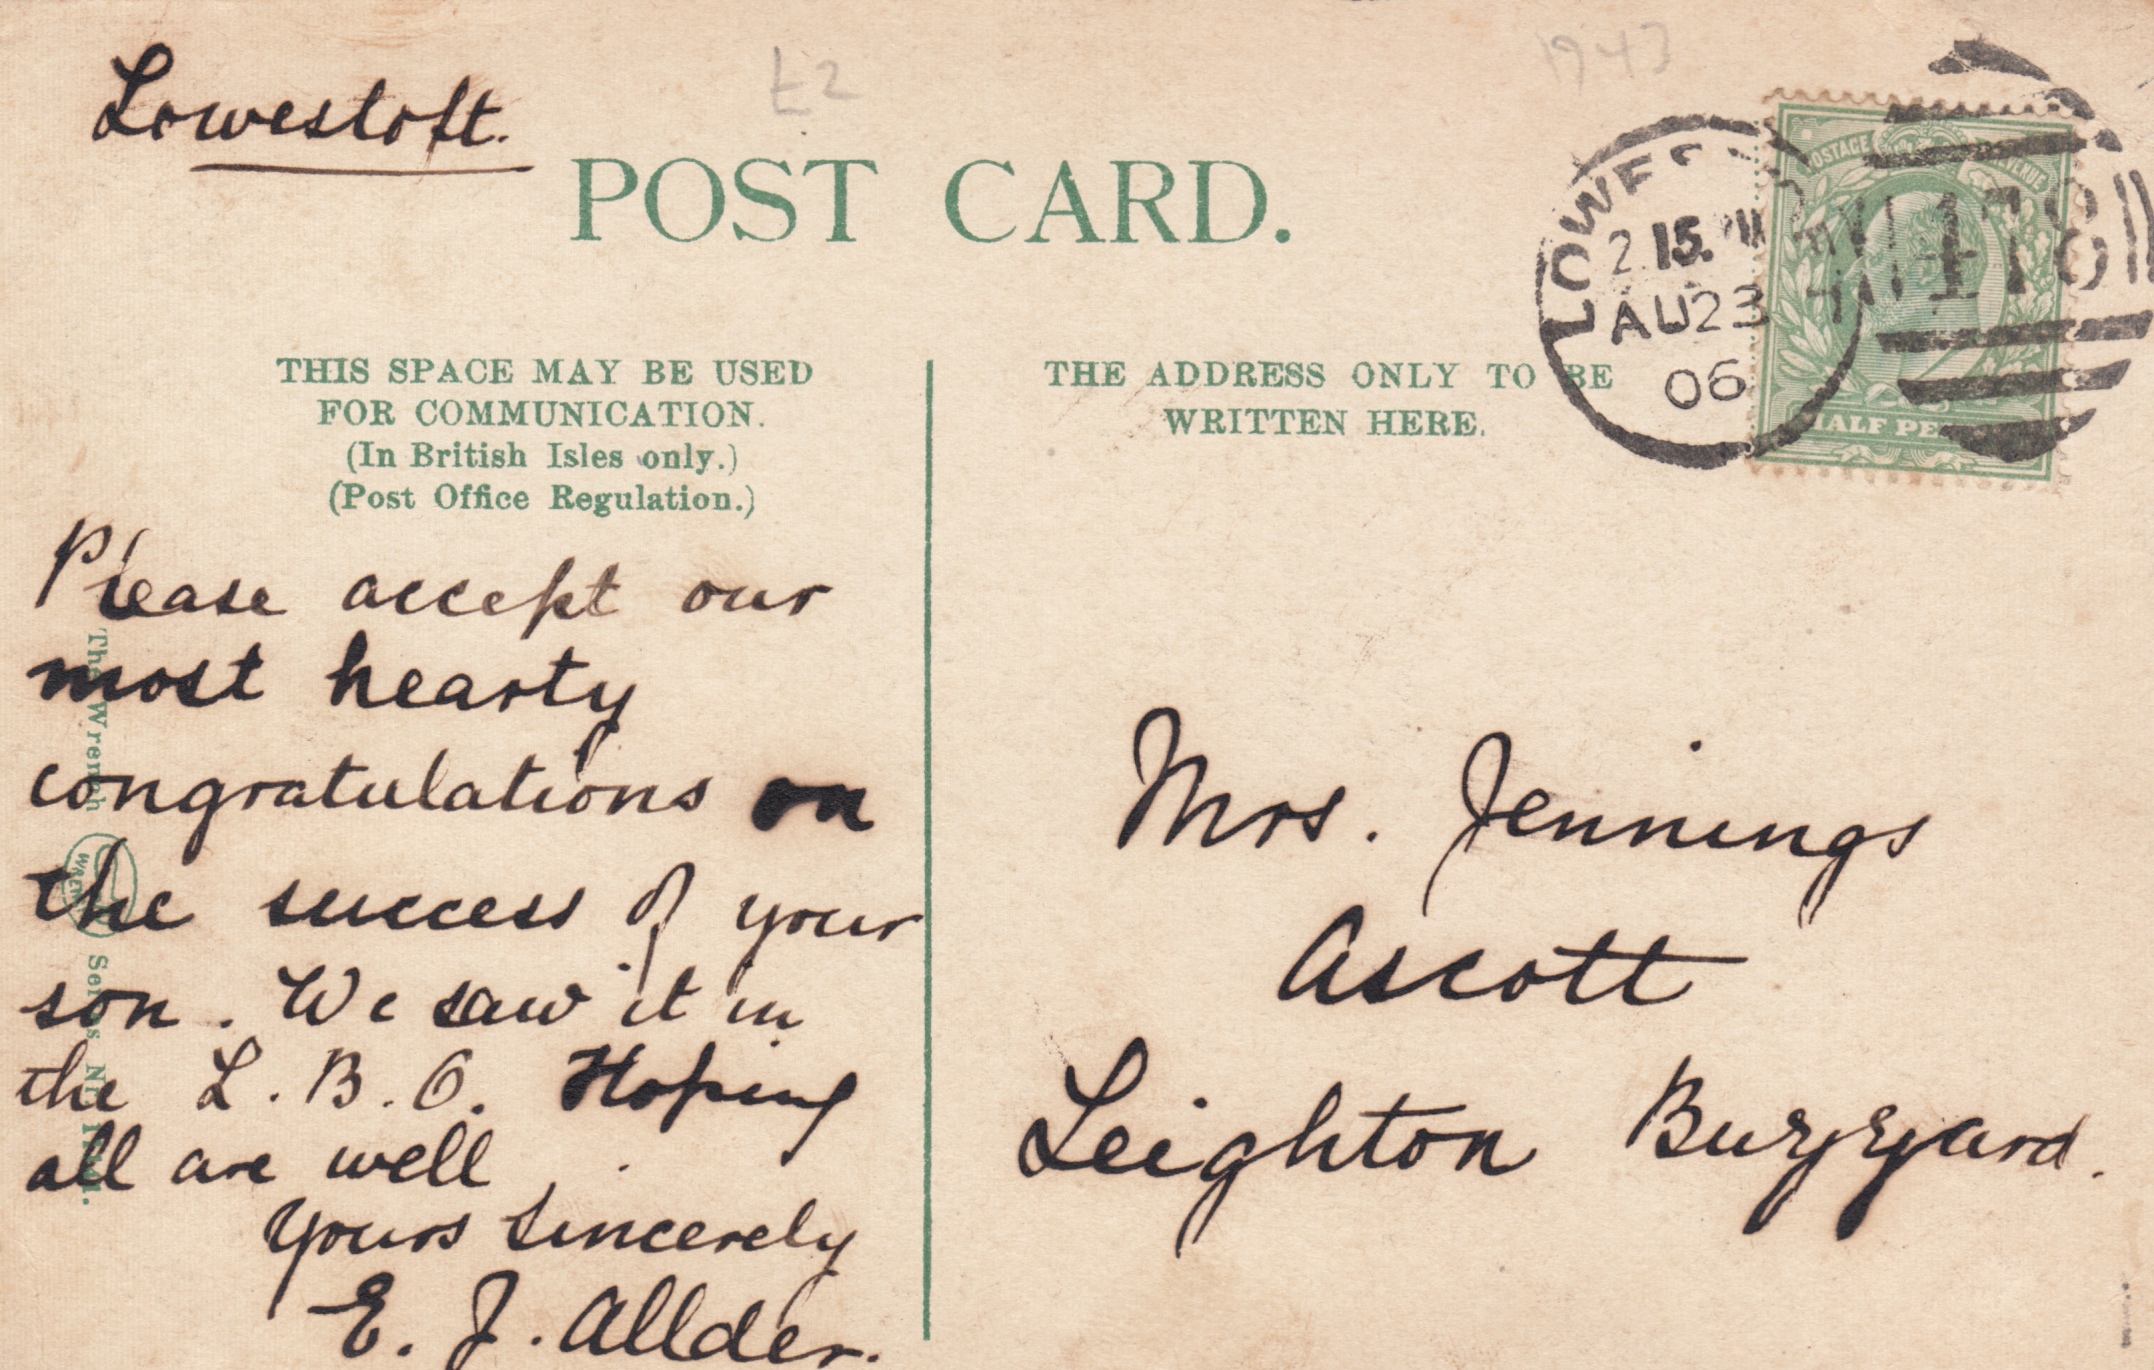 Lowestoft.
£2
1943
POST CARD.
LOWES
2.15. PM
AU 23
06
478
POSTAGE
REVENUE
HALF PE
THIS SPACE MAY BE USED
FOR COMMUNICATION.
(In British Isles only.)
(Post Office Regulation.)
THE ADDRESS ONLY TO BE
WRITTEN HERE.
Please accept our
most hearty
congratulations on
the success of your
son. We saw it in
the L. B. O. Hoping
all are well.
Yours sincerely
E. J. Allder.
The Wrench
Series
Mrs. Jennings
Ascott
Leighton Buzzard.